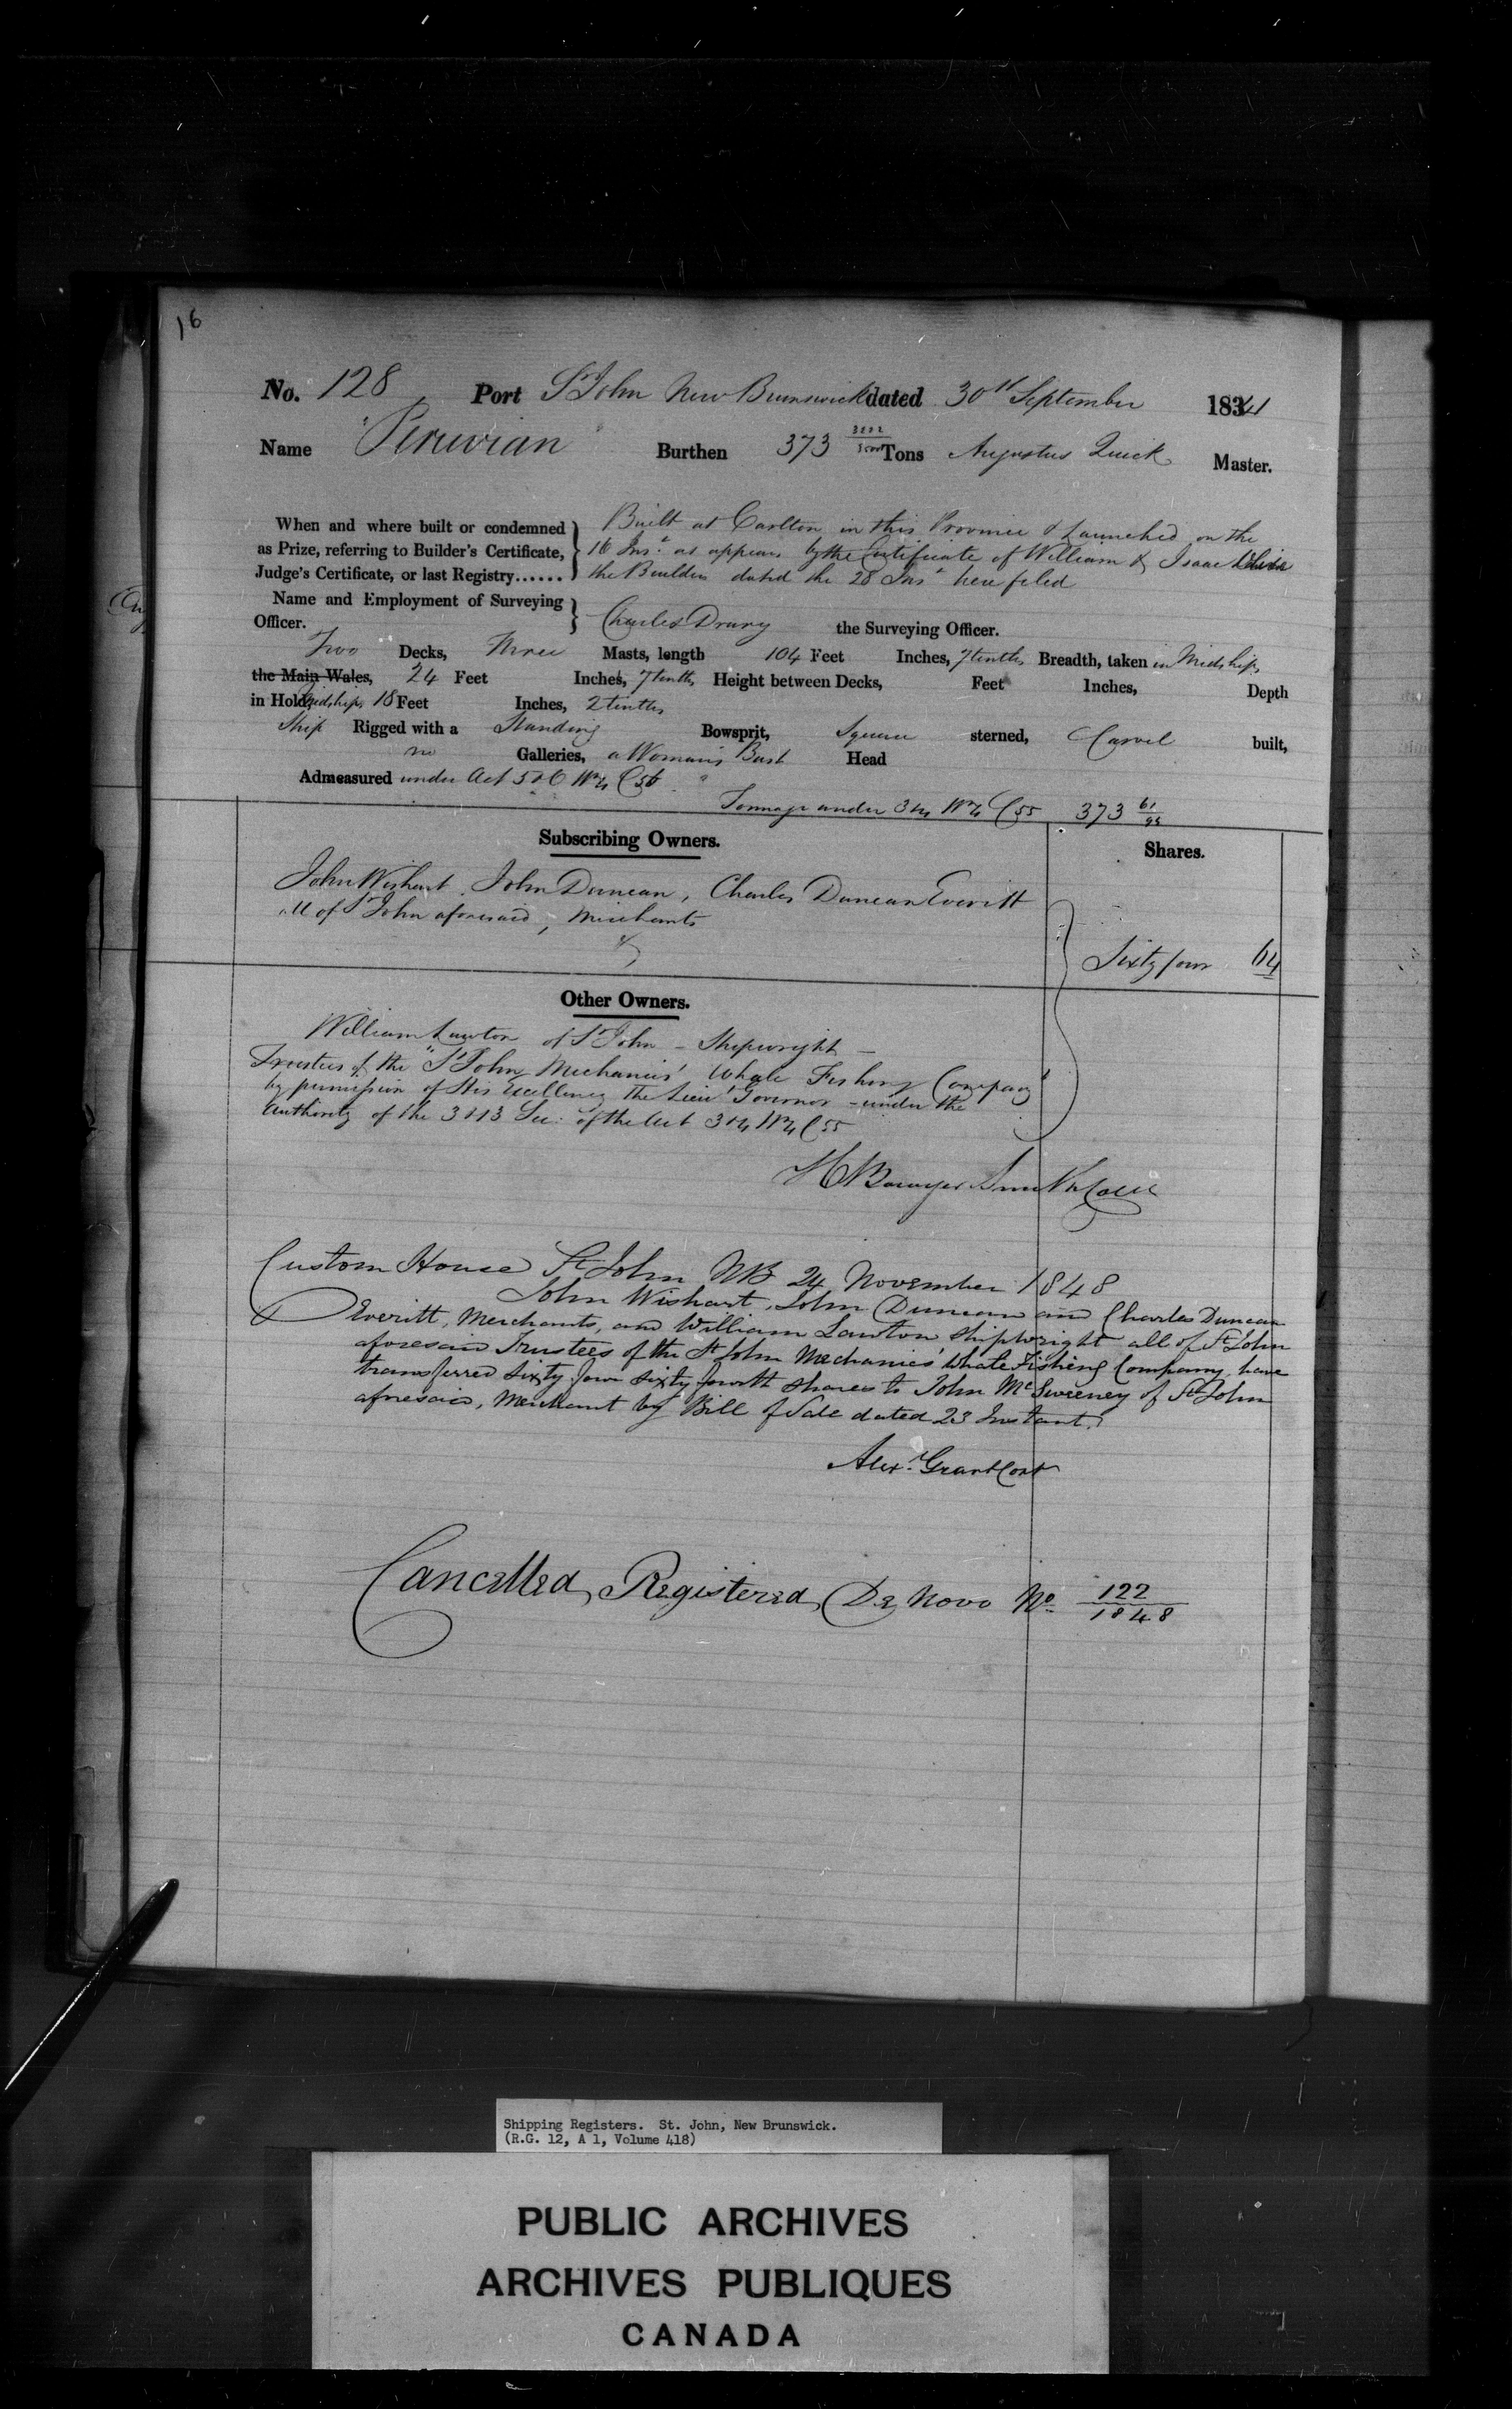 16
No. 128 Port St John New Brunswick dated 30th September 1841
Name "Peruvian" Burthen 373 Tons Augustus Quick Master.
When and where built or condemned Built at Carlton in this Province & Launched on the
as Prize, referring to Builder's Certificate, 16 Inst as appears by the Certificate of William & Isaac
Judge's Certificate, or last Registry...... the Builders dated the 28 Inst here filed
Name and Employment of Surveying
Officer. Charles Drury the Surveying Officer.
Two Decks, Three Masts, length 104 Feet Inches, 7 tenths Breadth, taken in Midships
the Main Wales, 24 Feet Inches, 7 tenths Height between Decks, Feet Inches, Depth
in Hold Midships 18 Feet Inches, 2 tenths
Ship Rigged with a Standing Bowsprit, Square sterned, Carvel built,
no Galleries, a Woman's Bust Head
Admeasured under Act 5 & 6 Wm 4 C 56
Tonnage under 3 & 4 Wm 4 C 55 373 61/95
Subscribing Owners. Shares.
John Wishart, John Duncan, Charles Duncan Everitt
all of St John aforesaid, Merchants
Sixty four 64
Other Owners.
William Lawton of St John - Shipwright -
Trustees of the "St John Mechanics' Whale Fishing Company"
by permission of His Excellency the Lieut Governor - under the
authority of the 3 & 13 Sec. of the Act 3 & 4 Wm 4 C 55
H Bowyer Smith
Custom House St John NB 24 November 1848
John Wishart, John Duncan and Charles Duncan
Everitt, Merchants, and William Lawton Shipwright all of St John
aforesaid Trustees of the St John Mechanics' Whale Fishing Company, have
transferred sixty four sixty fourth shares to John McSweeney of St John
aforesaid, Merchant by Bill of Sale dated 23 Instant.
Alexr Grant Cont
Cancelled, Registered De Novo No 122/1848
Shipping Registers. St. John, New Brunswick.
(R.G. 12, A 1, Volume 418)
PUBLIC ARCHIVES
ARCHIVES PUBLIQUES
CANADA